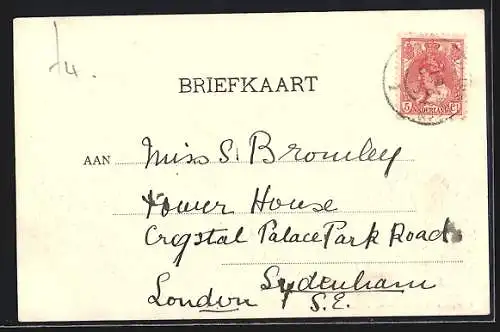 BRIEFKAART
5 Ct
NEDERLAND
AAN Miss S. Bromley
Tower House
Crystal Palace Park Road
Sydenham
London S.E.